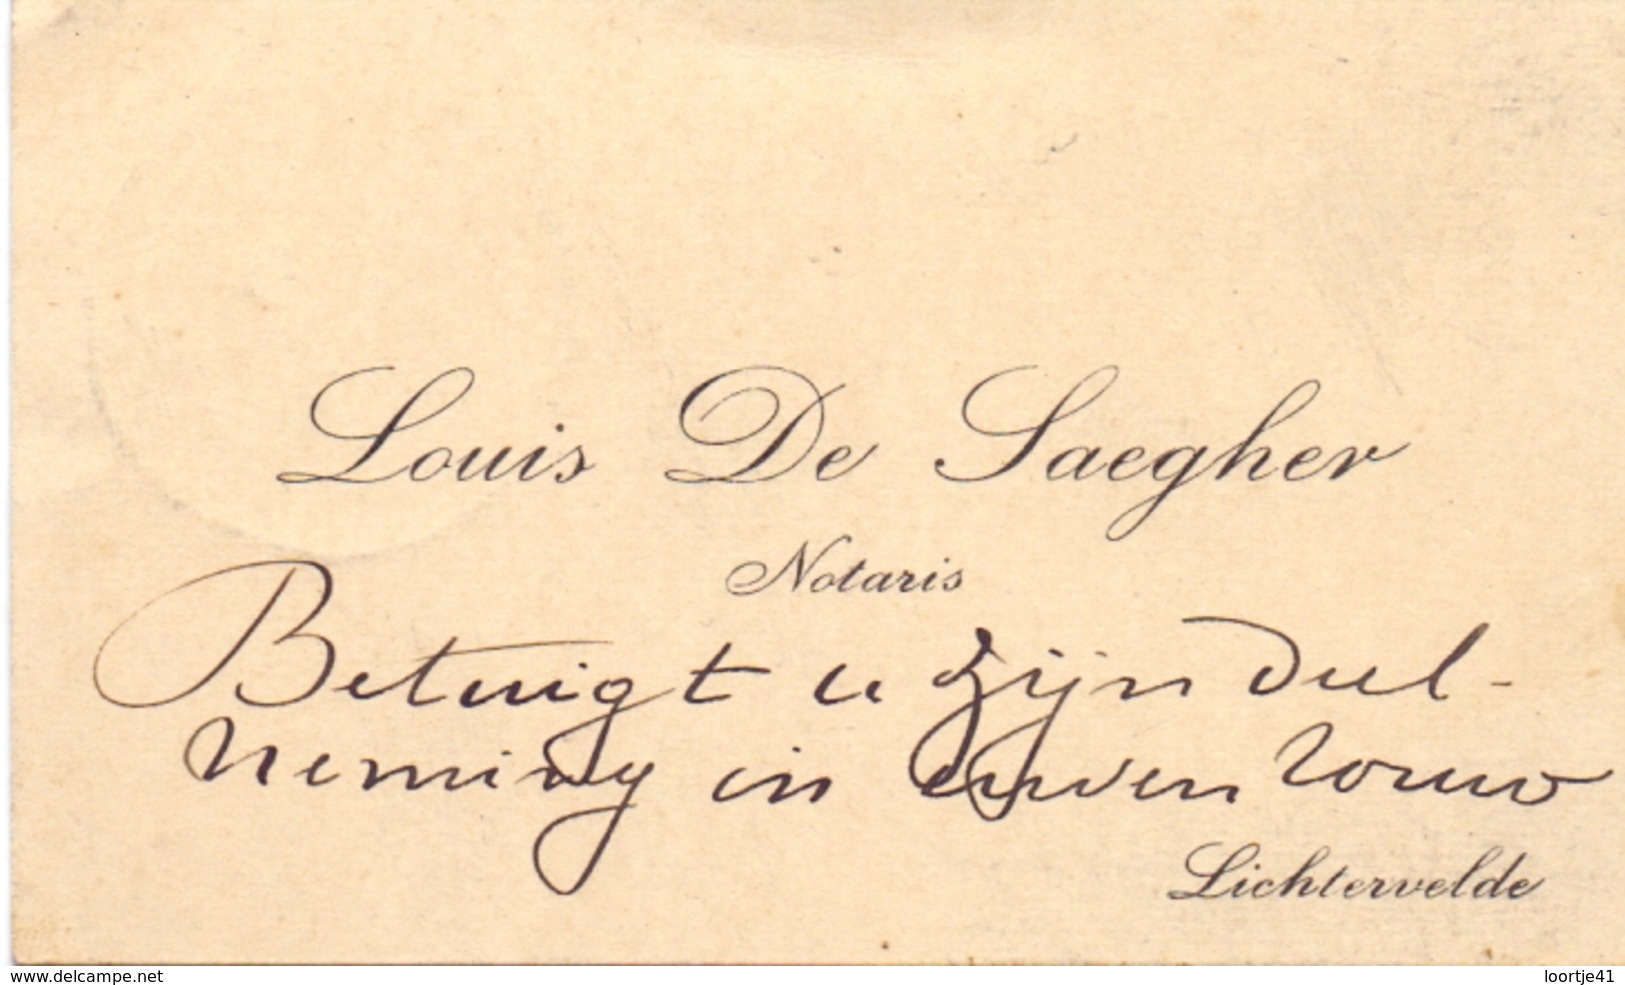 Louis De Saegher
Notaris
Betuigt u zijn deel-
neming in uwen rouw
Lichtervelde
www.delcampe.net
loortje41